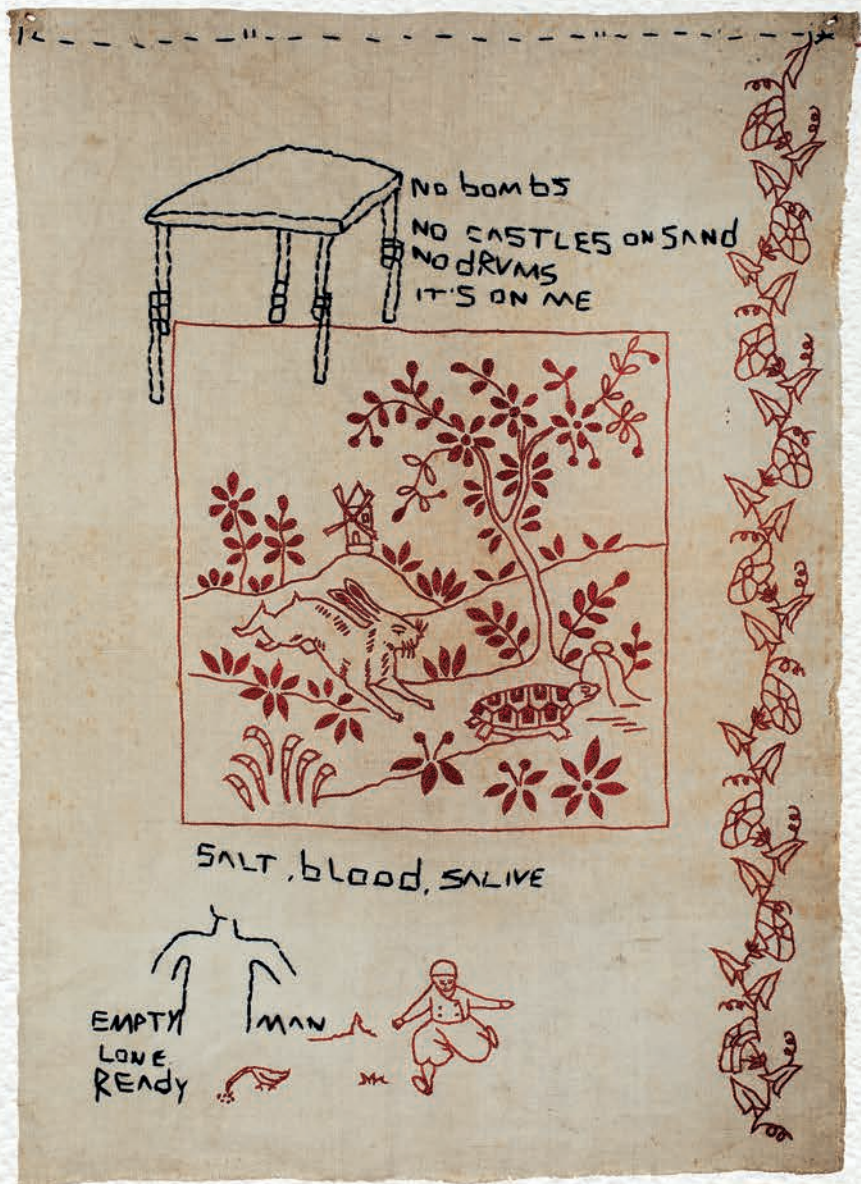 NO bombs
NO CASTLES ON SAND
NO dRUMS
IT'S ON ME
SALT, blood, SALIVE
EMPTY MAN
LONE
REAdY